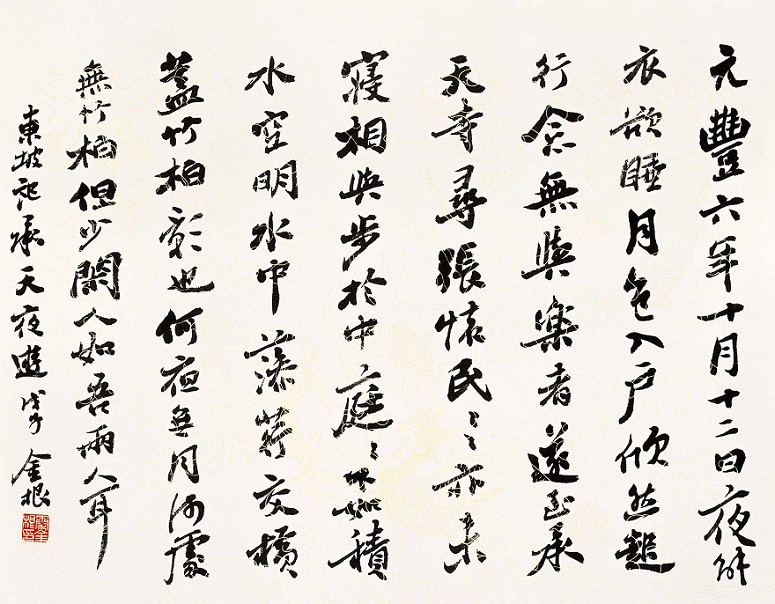 元豐六年十月十二日夜解
衣欲睡月色入戶欣然起
行念無與樂者遂至承
天寺尋張懷民〻亦未
寢相與步於中庭〻下如積
水空明水中藻荇交橫
蓋竹柏影也何夜無月何處
無竹柏但少閑人如吾兩人耳
東坡記承天夜遊 戊子 金根